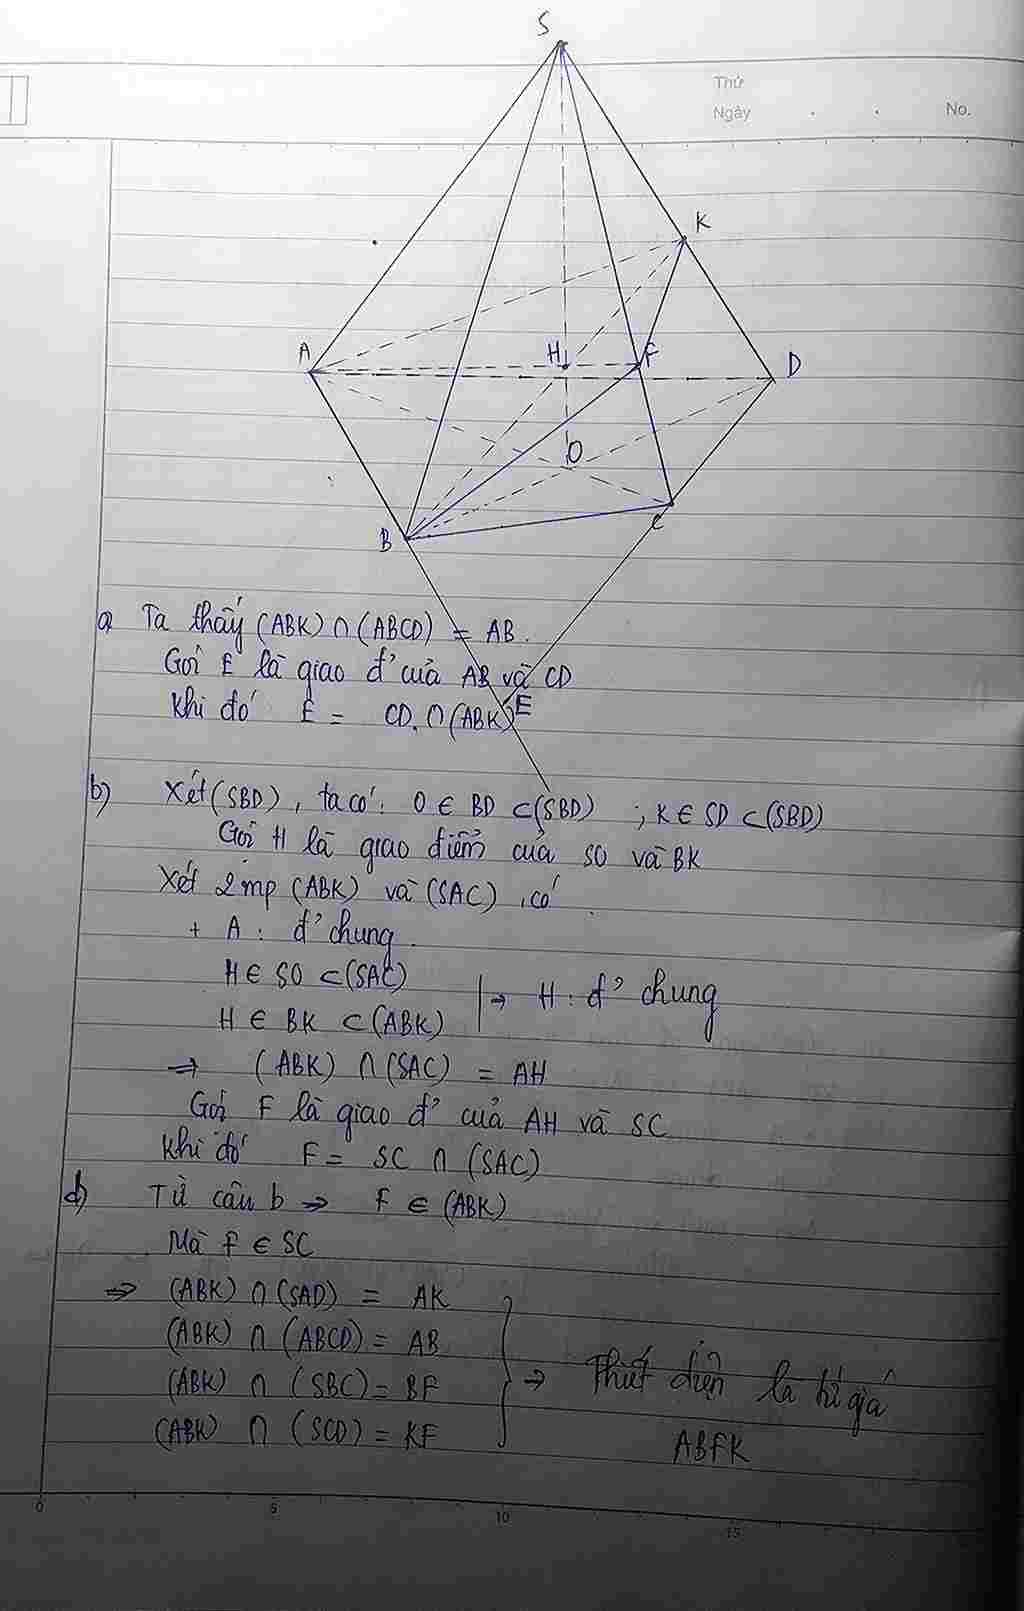 S
Thứ
Ngày . . No.
K
A H F D
O
B C
a Ta thấy (ABK) ∩ (ABCD) = AB.
Gọi E là giao đ' của AB và CD
Khi đó E = CD ∩ (ABK)
E
b) Xét (SBD), ta có: O ∈ BD ⊂ (SBD) ; K ∈ SD ⊂ (SBD)
Gọi H là giao điểm của SO và BK
Xét 2 mp (ABK) và (SAC), có
+ A : đ' chung.
H ∈ SO ⊂ (SAC)
H ∈ BK ⊂ (ABK) | → H : đ' chung
⇒ (ABK) ∩ (SAC) = AH
Gọi F là giao đ' của AH và SC
Khi đó F = SC ∩ (SAC)
d) Từ câu b ⇒ F ∈ (ABK)
Mà F ∈ SC
⇒ (ABK) ∩ (SAD) = AK
(ABK) ∩ (ABCD) = AB
(ABK) ∩ (SBC) = BF
(ABK) ∩ (SCD) = KF
} → Thiết diện là tứ giá
ABFK
0 5 10 15